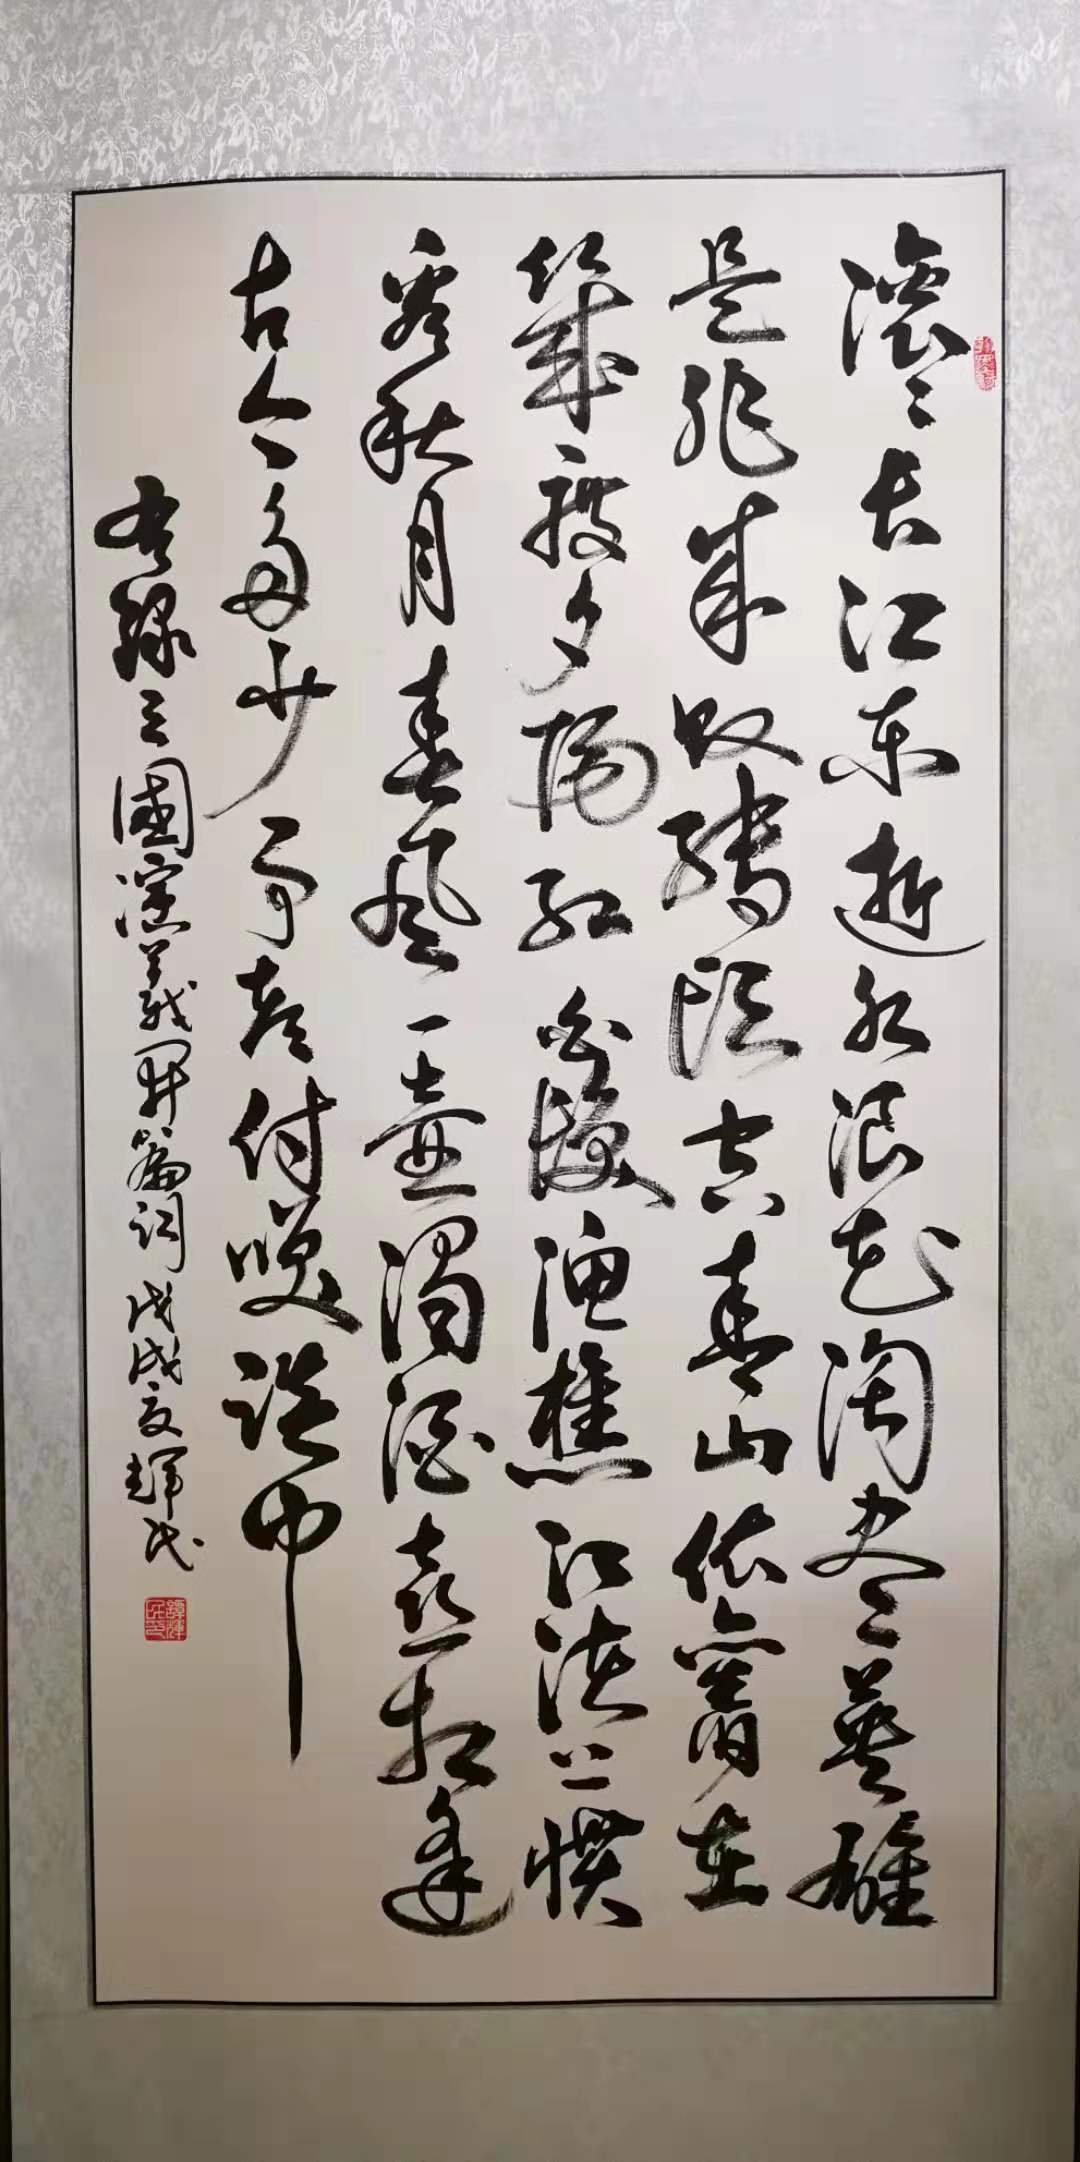 滚〻长江东逝水浪花淘尽英雄
是非成败转头空青山依旧在
几度夕阳红白发渔樵江渚上惯
看秋月春风一壶浊酒喜相逢
古今多少事都付笑谈中
录三國演义开篇词戊戌夏辉民